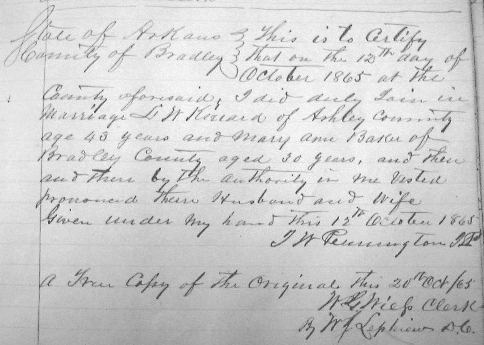 State of Arkans } This is to Certify
County of Bradley } that on the 12th day of
October 1865 at the
County aforesaid, I did duly Join in
Marriage W Howard of Ashley County
age 43 years and Mary Ann Baker of
Bradley County aged 30 years, and then
and there by the authority in me vested
pronounced them Husband and Wife
Given under my hand this 12th October 1865
J W Pennington
A True Copy of the Original this 20th Oct/65
Clerk
By D.C.